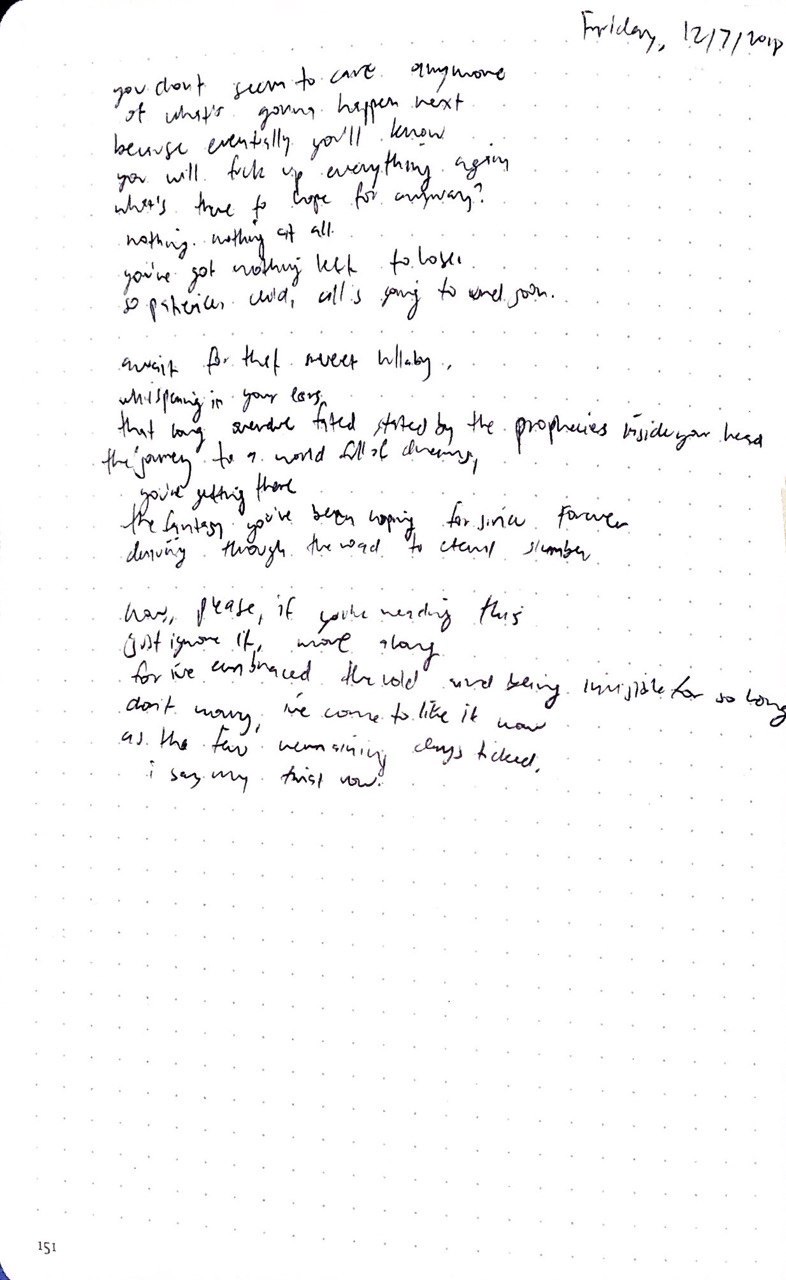 Friday, 12/7/2018
you don't seem to care anymore
of what's gonna happen next
because eventally you'll know
you will fuck up everything again
what's there to hope for anyway?
nothing. nothing at all.
you've got nothing left to lose.
so patience, child, all's going to end soon.
await for that sweet lullaby,
whispering in your ears,
that long overdue fated stated by the prophecies inside your head
the journey to a world full of dreams,
you're getting there
the fantasy you've been hoping for since forever
driving through the road to eternal slumber
now, please, if you're reading this
just ignore it, move along
for i've embraced the cold and being invisible for so long
don't worry, i've come to like it now
as the few remaining days ticked,
i say my now.
151